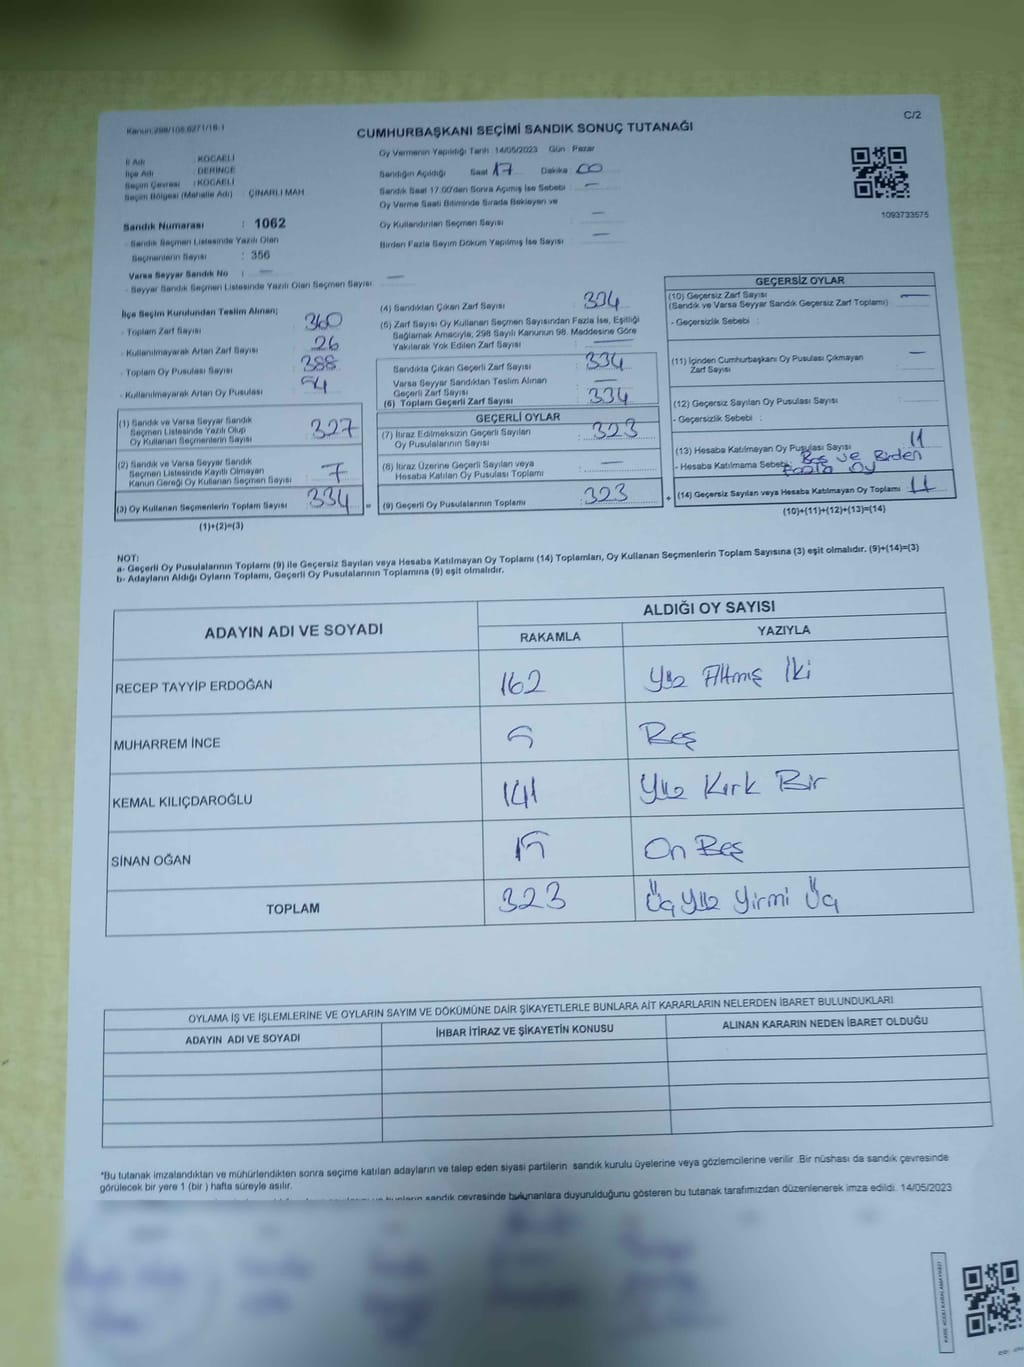 Kanun:298/105,6271/18-1
C/2
CUMHURBAŞKANI SEÇİMİ SANDIK SONUÇ TUTANAĞI
İl Adı : KOCAELİ
İlçe Adı : DERİNCE
Seçim Çevresi : KOCAELİ
Seçim Bölgesi (Mahalle Adı) ÇINARLI MAH
Sandık Numarası : 1062
- Sandık Seçmen Listesinde Yazılı Olan
Seçmenlerin Sayısı : 356
Varsa Seyyar Sandık No : —
- Seyyar Sandık Seçmen Listesinde Yazılı Olan Seçmen Sayısı —
Oy Vermenin Yapıldığı Tarih :14/05/2023 Gün : Pazar
Sandığın Açıldığı Saat 17 Dakika 00
Sandık Saat 17.00'den Sonra Açılmış İse Sebebi : —
Oy Verme Saati Bitiminde Sırada Bekleyen ve
Oy Kullandırılan Seçmen Sayısı —
Birden Fazla Sayım Döküm Yapılmış İse Sayısı —
1093733575
İlçe Seçim Kurulundan Teslim Alınan;
- Toplam Zarf Sayısı : 360
- Kullanılmayarak Artan Zarf Sayısı : 26
- Toplam Oy Pusulası Sayısı : 388
- Kullanılmayarak Artan Oy Pusulası : 54
(1) Sandık ve Varsa Seyyar Sandık
Seçmen Listesinde Yazılı Olup
Oy Kullanan Seçmenlerin Sayısı : 327
(2) Sandık ve Varsa Seyyar Sandık
Seçmen Listesinde Kayıtlı Olmayan
Kanun Gereği Oy Kullanan Seçmen Sayısı : 7
(3) Oy Kullanan Seçmenlerin Toplam Sayısı : 334
(1)+(2)=(3)
(4) Sandıktan Çıkan Zarf Sayısı : 334
(5) Zarf Sayısı Oy Kullanan Seçmen Sayısından Fazla İse, Eşitliği
Sağlamak Amacıyla; 298 Sayılı Kanunun 98. Maddesine Göre
Yakılarak Yok Edilen Zarf Sayısı : —
Sandıkta Çıkan Geçerli Zarf Sayısı : 334
Varsa Seyyar Sandıktan Teslim Alınan
Geçerli Zarf Sayısı : —
(6) Toplam Geçerli Zarf Sayısı : 334
GEÇERLİ OYLAR
(7) İtiraz Edilmeksizin Geçerli Sayılan
Oy Pusulalarının Sayısı : 323
(8) İtiraz Üzerine Geçerli Sayılan veya
Hesaba Katılan Oy Pusulası Toplamı : —
= (9) Geçerli Oy Pusulalarının Toplamı : 323
GEÇERSİZ OYLAR
(10) Geçersiz Zarf Sayısı —
(Sandık ve Varsa Seyyar Sandık Geçersiz Zarf Toplamı) :
- Geçersizlik Sebebi :
(11) İçinden Cumhurbaşkanı Oy Pusulası Çıkmayan
Zarf Sayısı —
(12) Geçersiz Sayılan Oy Pusulası Sayısı :
- Geçersizlik Sebebi :
(13) Hesaba Katılmayan Oy Pusulası Sayısı 11
- Hesaba Katılmama Sebebi : Boş ve Birden
Fazla Oy
+ (14) Geçersiz Sayılan veya Hesaba Katılmayan Oy Toplamı 11
(10)+(11)+(12)+(13)=(14)
NOT:
a- Geçerli Oy Pusulalarının Toplamı (9) ile Geçersiz Sayılan veya Hesaba Katılmayan Oy Toplamı (14) Toplamları, Oy Kullanan Seçmenlerin Toplam Sayısına (3) eşit olmalıdır. (9)+(14)=(3)
b- Adayların Aldığı Oyların Toplamı, Geçerli Oy Pusulalarının Toplamına (9) eşit olmalıdır.
ADAYIN ADI VE SOYADI
ALDIĞI OY SAYISI
RAKAMLA YAZIYLA
RECEP TAYYİP ERDOĞAN 162 Yüz Altmış İki
MUHARREM İNCE 5 Beş
KEMAL KILIÇDAROĞLU 141 Yüz Kırk Bir
SİNAN OĞAN 15 On Beş
TOPLAM 323 Üç Yüz Yirmi Üç
OYLAMA İŞ VE İŞLEMLERİNE VE OYLARIN SAYIM VE DÖKÜMÜNE DAİR ŞİKAYETLERLE BUNLARA AİT KARARLARIN NELERDEN İBARET BULUNDUKLARI
ADAYIN ADI VE SOYADI İHBAR İTİRAZ VE ŞİKAYETİN KONUSU ALINAN KARARIN NEDEN İBARET OLDUĞU
*Bu tutanak imzalandıktan ve mühürlendikten sonra seçime katılan adayların ve talep eden siyasi partilerin sandık kurulu üyelerine veya gözlemcilerine verilir. Bir nüshası da sandık çevresinde
görülecek bir yere 1 (bir ) hafta süreyle asılır.
sandık çevresinde bulunanlara duyurulduğunu gösteren bu tutanak tarafımızdan düzenlenerek imza edildi. 14/05/2023